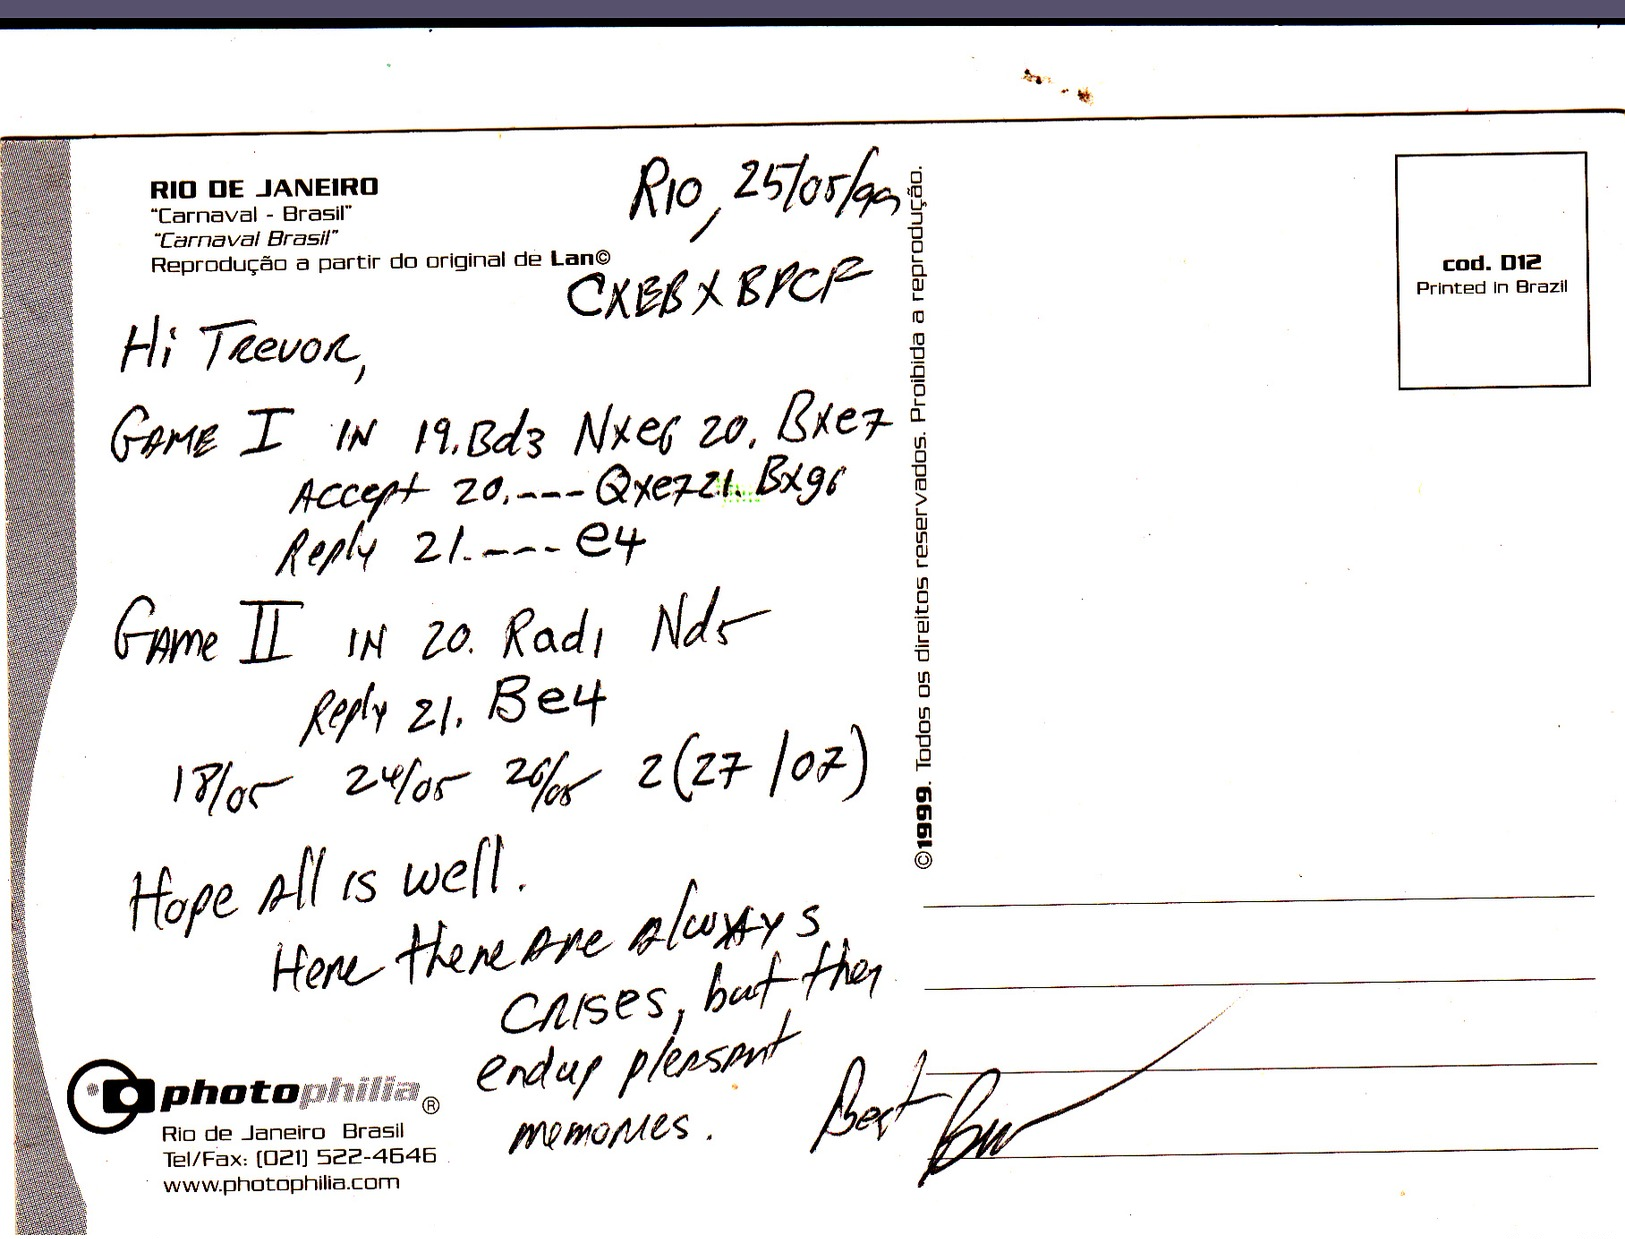 RIO DE JANEIRO
"Carnaval - Brasil"
"Carnaval Brasil"
Reprodução a partir do original de Lan©
Rio, 25/05/99
CXEB X BPCF
Hi Trevor,
GAME I IN 19.Bd3 Nxe6 20. Bxe7
Accept 20.---Qxe7 21. Bxg6
Reply 21.---e4
GAME II IN 20. Rad1 Nd5
Reply 21. Be4
18/05 24/05 26/05 2(27/07)
Hope All is well.
Here there are always
crises, but they
end up pleasant
memories.
Best
photophilia®
Rio de Janeiro Brasil
Tel/Fax: (021) 522-4646
www.photophilia.com
©1999. Todos os direitos reservados. Proibida a reprodução.
cod. D12
Printed in Brazil